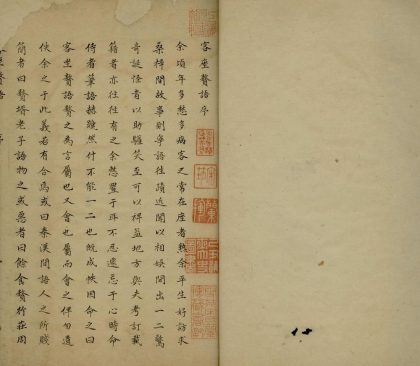 客座贅語序
余頃年多愁多病客之常在座者熟余平生好訪求
桑梓間故事則爭語往蹟近聞以相娛間出一二驚
奇誕怪者以助驩笑至可以裨益地方與夫考訂載
籍者亦往往有之余愁置于耳不忍遽忘于心時命
侍者筆語赫蹏然什不能一二也既成帙因命之曰
客座贅語贅之為言屬也又會也屬而會之俾勿遺
佚余之于此義若有合焉或曰秦漢間語人之所賤
簡者曰贅壻老子語物之或惡者曰餘食贅行莊周